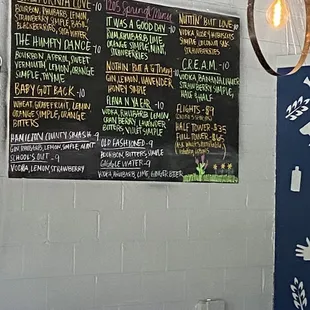 CALIFORNIA LOVE -10
BOURBON, RHUBARB, LEMON
ORANGE, SIMPLE, BASIL
BLACKBERRY, SODA
THE HUMPTY DANCE -10
BOURBON, APEROL, SWEET
VERMOUTH, LEMON, ORANGE
SIMPLE, THYME
BABY GOT BACK -10
WHEAT, GRAPEFRUIT, LEMON
ORANGE, SIMPLE, ORANGE
BITTERS
HAMILTON COUNTY SMASH -9
GIN, RHUBARB, LEMON, SIMPLE, MINT
SCHOOL'S OUT -9
VODKA, LEMON, STRAWBERRY
1205 Spring Menu
IT WAS A GOOD DAY -10
RUM, RHUBARB, LIME
ORANGE, SIMPLE, MINT,
STRAWBERRIES
NOTHIN BUT A G THANG -10
GIN, LEMON, LAVENDER,
HONEY SIMPLE
FLAVA IN YA EAR -10
VODKA, RHUBARB, LEMON,
CRANBERRY, LAVENDER
BITTERS, VIOLET SIMPLE
OLD FASHIONED -9
BOURBON, BITTERS, SIMPLE
GAGGLE WATER -9
VODKA, RHUBARB, LIME, GINGER BEER
NUTTIN' BUT LOVE -10
VODKA, ROSE, RHUBARB
SIMPLE,
STRAWBERRIES
C.R.E.A.M. -10
VODKA, BANANA, VANILLA
STRAWBERRY SIMPLE,
HALF & HALF
FLIGHTS -$19
HALF TOWER -$35
FULL TOWER -$65